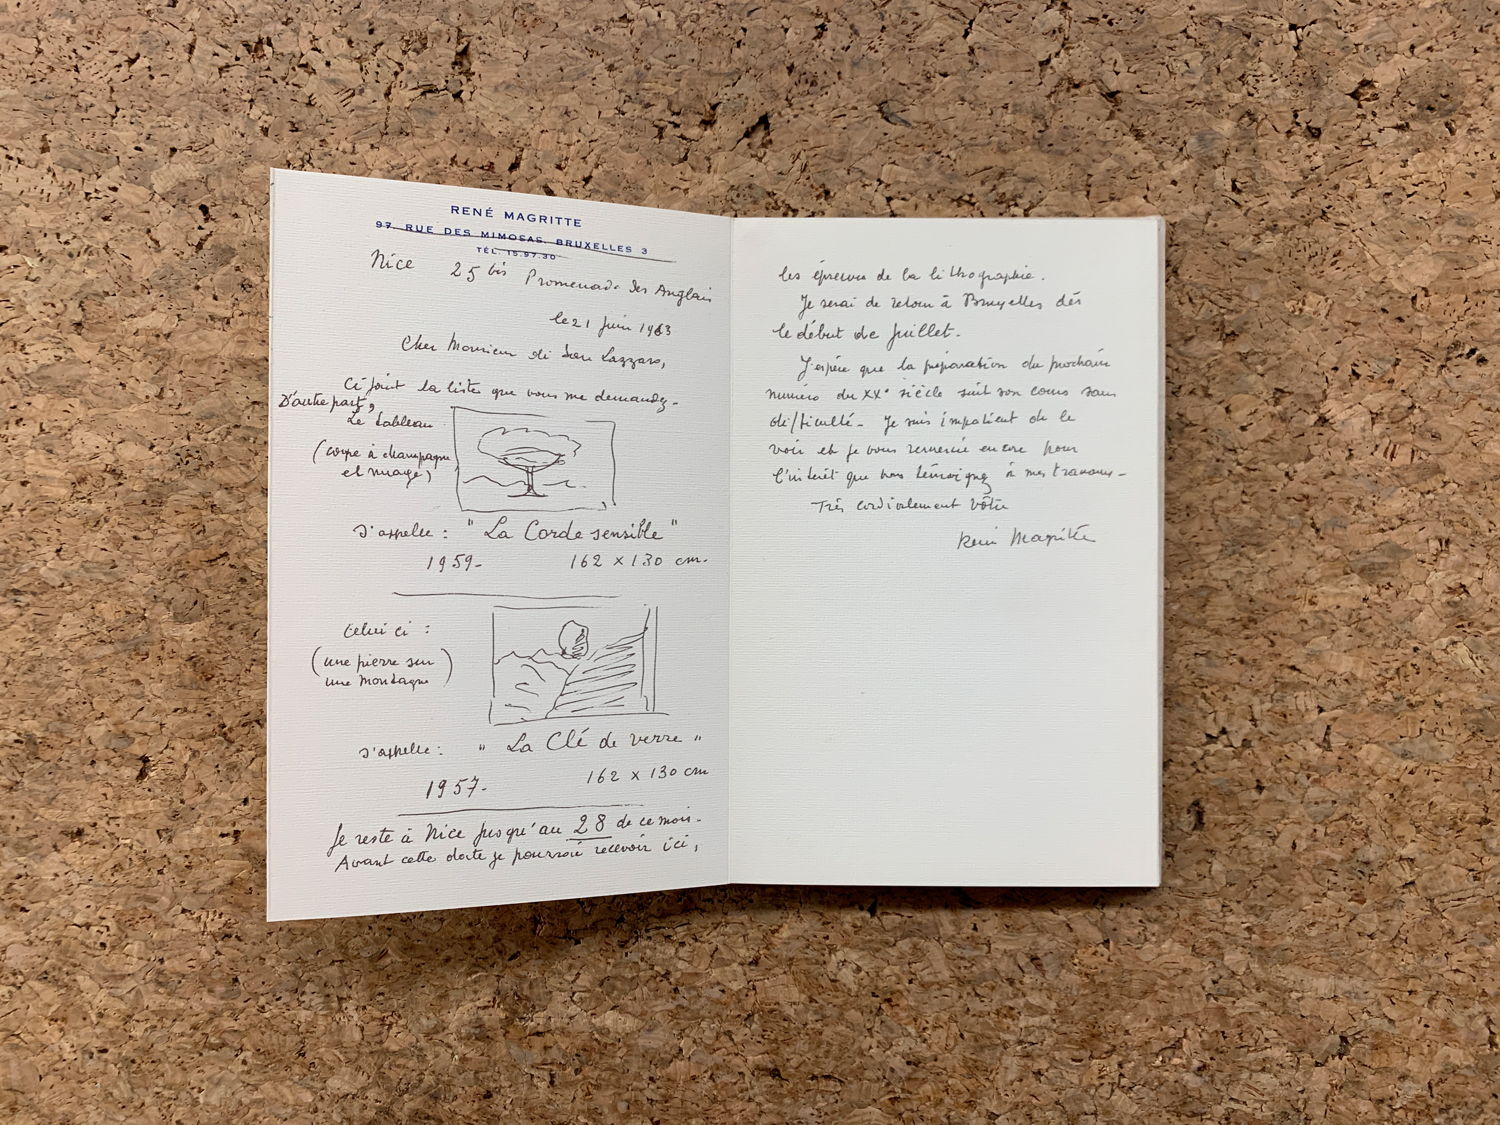 RENÉ MAGRITTE
97, RUE DES MIMOSAS, BRUXELLES 3
TÉL. 15.97.30
Nice 25 bis Promenade des Anglais
le 21 juin 1963
Cher Monsieur di San Lazzaro,
Ci joint la liste que vous me demandez-
D'autre part,
Le tableau
(coupe à champagne
et nuage)
s'appelle : "La Corde sensible"
1959- 162 x 130 cm.
Celui ci :
(une pierre sur
une montagne)
s'appelle : "La Clé de verre"
1957- 162 x 130 cm
Je reste à Nice jusqu'au 28 de ce mois-
Avant cette date je pourrai recevoir ici,
les épreuves de la lithographie.
Je serai de retour à Bruxelles dès
le début de Juillet.
J'espère que la préparation du prochain
numéro du XXe siècle suit son cours sans
difficulté- Je suis impatient de le
voir et je vous remercie encore pour
l'intérêt que vous témoignez à mes travaux-
Très cordialement vôtre
René Magritte